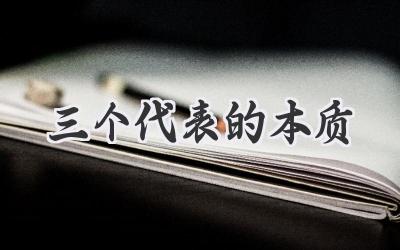 三个代表的本质